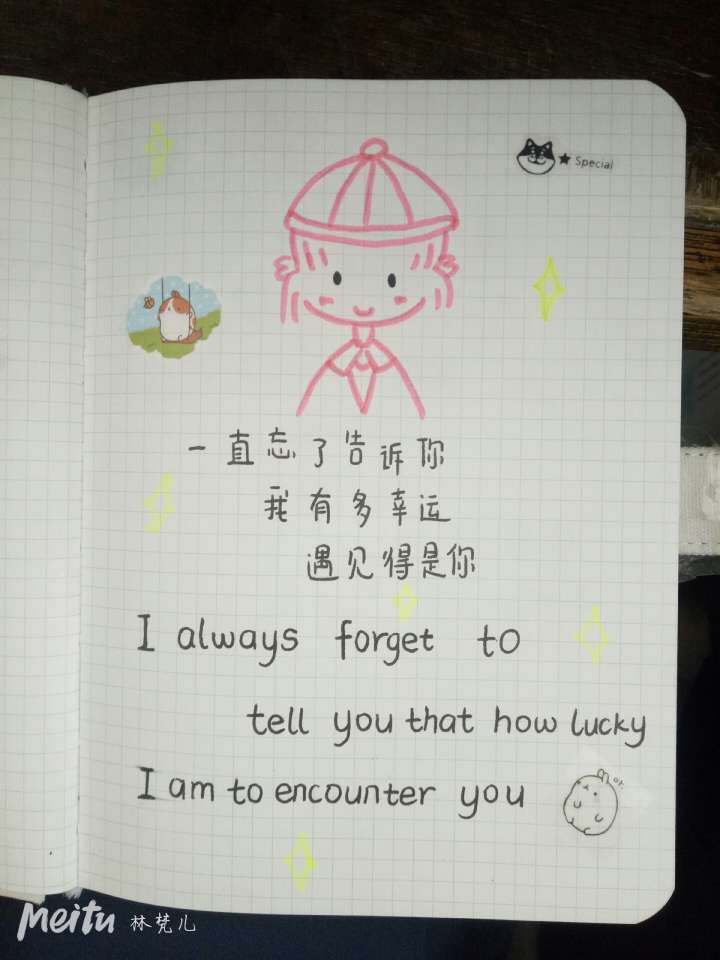 Special
一直忘了告诉你
我有多幸运
遇见得是你
I always forget to
tell you that how lucky
I am to encounter you
Meitu 林梵儿